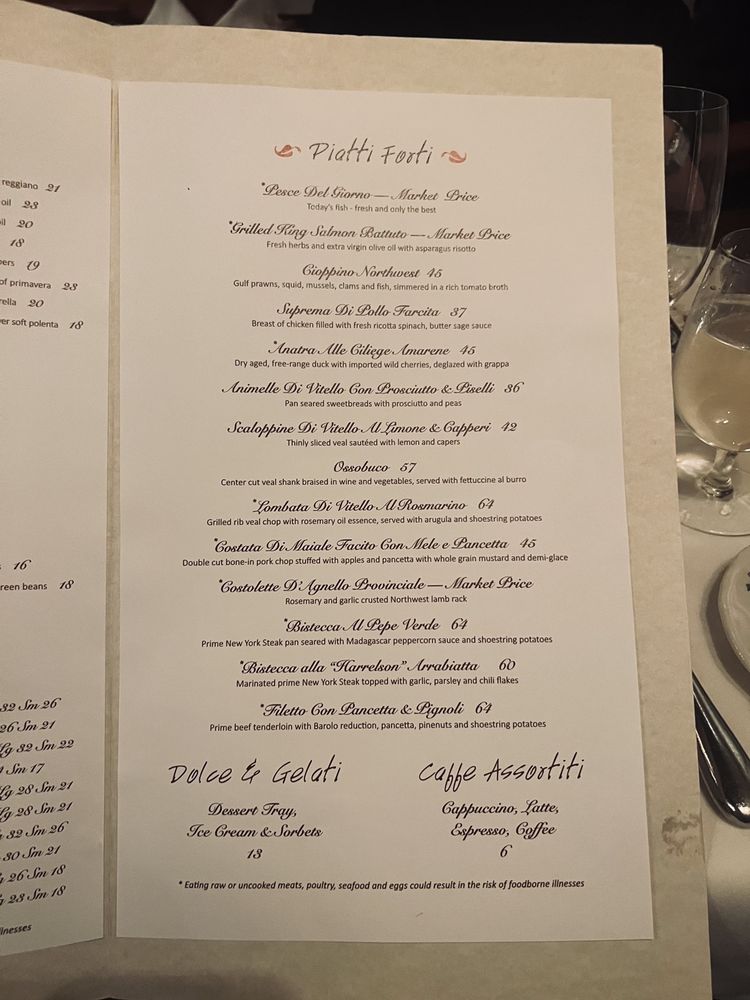 reggiano 21
oil 23
il 20
18
pers 19
of primavera 23
rella 20
ver soft polenta 18
16
reen beans 18
32 Sm 26
26 Sm 21
Lg 32 Sm 22
Sm 17
Lg 28 Sm 21
Lg 28 Sm 21
32 Sm 26
30 Sm 21
26 Sm 18
23 Sm 18
llnesses
Piatti Forti
*Pesce Del Giorno — Market Price
Today's fish - fresh and only the best
*Grilled King Salmon Battuto — Market Price
Fresh herbs and extra virgin olive oil with asparagus risotto
Cioppino Northwest 45
Gulf prawns, squid, mussels, clams and fish, simmered in a rich tomato broth
Suprema Di Pollo Farcita 37
Breast of chicken filled with fresh ricotta spinach, butter sage sauce
*Anatra Alle Ciliege Amarene 45
Dry aged, free-range duck with imported wild cherries, deglazed with grappa
Animelle Di Vitello Con Prosciutto & Piselli 36
Pan seared sweetbreads with prosciutto and peas
Scaloppine Di Vitello Al Limone & Capperi 42
Thinly sliced veal sautéed with lemon and capers
Ossobuco 57
Center cut veal shank braised in wine and vegetables, served with fettuccine al burro
*Lombata Di Vitello Al Rosmarino 64
Grilled rib veal chop with rosemary oil essence, served with arugula and shoestring potatoes
*Costata Di Maiale Facito Con Mele e Pancetta 45
Double cut bone-in pork chop stuffed with apples and pancetta with whole grain mustard and demi-glace
*Costolette D'Agnello Provinciale — Market Price
Rosemary and garlic crusted Northwest lamb rack
*Bistecca Al Pepe Verde 64
Prime New York Steak pan seared with Madagascar peppercorn sauce and shoestring potatoes
*Bistecca alla "Harrelson" Arrabiatta 60
Marinated prime New York Steak topped with garlic, parsley and chili flakes
*Filetto Con Pancetta & Pignoli 64
Prime beef tenderloin with Barolo reduction, pancetta, pinenuts and shoestring potatoes
Dolce & Gelati
Dessert Tray,
Ice Cream & Sorbets
13
Caffe Assortiti
Cappuccino, Latte,
Espresso, Coffee
6
* Eating raw or uncooked meats, poultry, seafood and eggs could result in the risk of foodborne illnesses